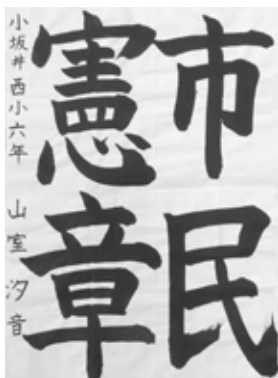 市民
憲章
小坂井西小六年 山室汐音